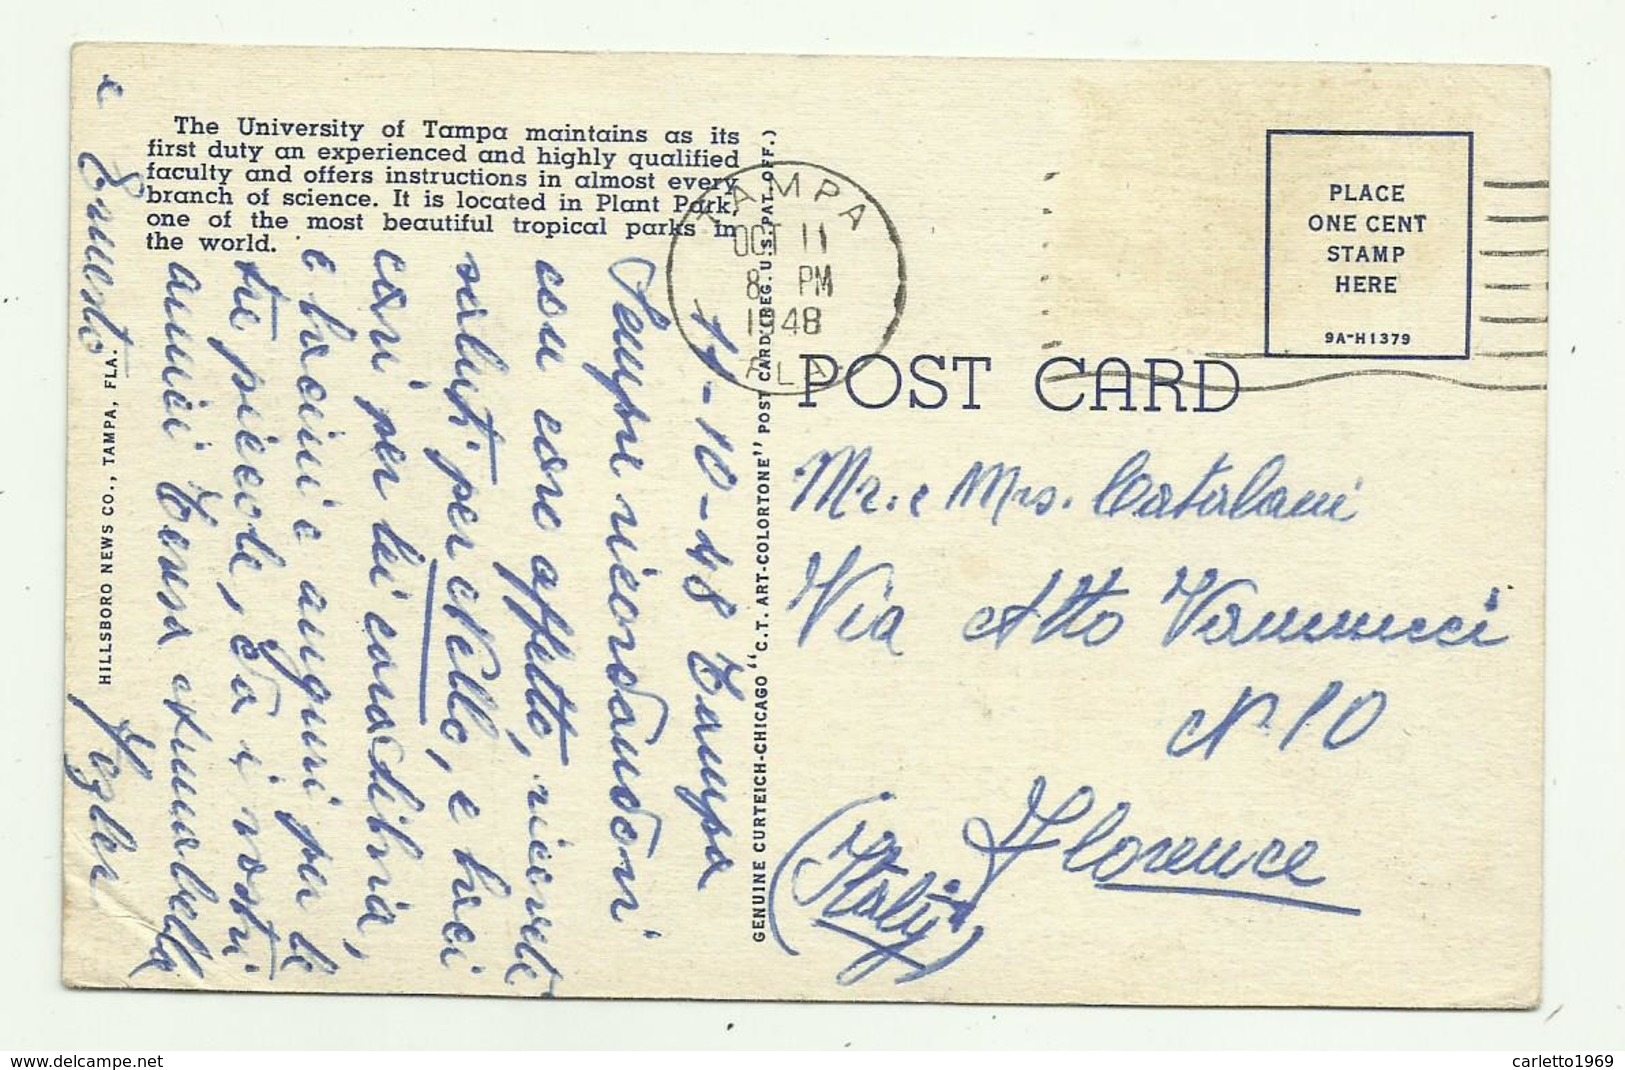 The University of Tampa maintains as its
first duty an experienced and highly qualified
faculty and offers instructions in almost every
branch of science. It is located in Plant Park,
one of the most beautiful tropical parks in
the world.
HILLSBORO NEWS CO., TAMPA, FLA.
11-10-48 Tampa
Sempre ricordandovi
con caro affetto, ricevete
saluti per Nello, e baci
cari per lei cara Dilvia,
e bacini e auguri per le
tre piccole, da i vostri
amici Tensa e
e Ernesto
GENUINE CURTEICH-CHICAGO "C.T. ART-COLORTONE" POST CARD (REG. U.S. PAT. OFF.)
TAMPA
OCT 11
8 PM
1948
FLA
PLACE
ONE CENT
STAMP
HERE
9A-H1379
POST CARD
Mr. e Mrs. Catalani
Via Atto Vannucci
N. 10
Florence
(Italy)
carletto1969
www.delcampe.net